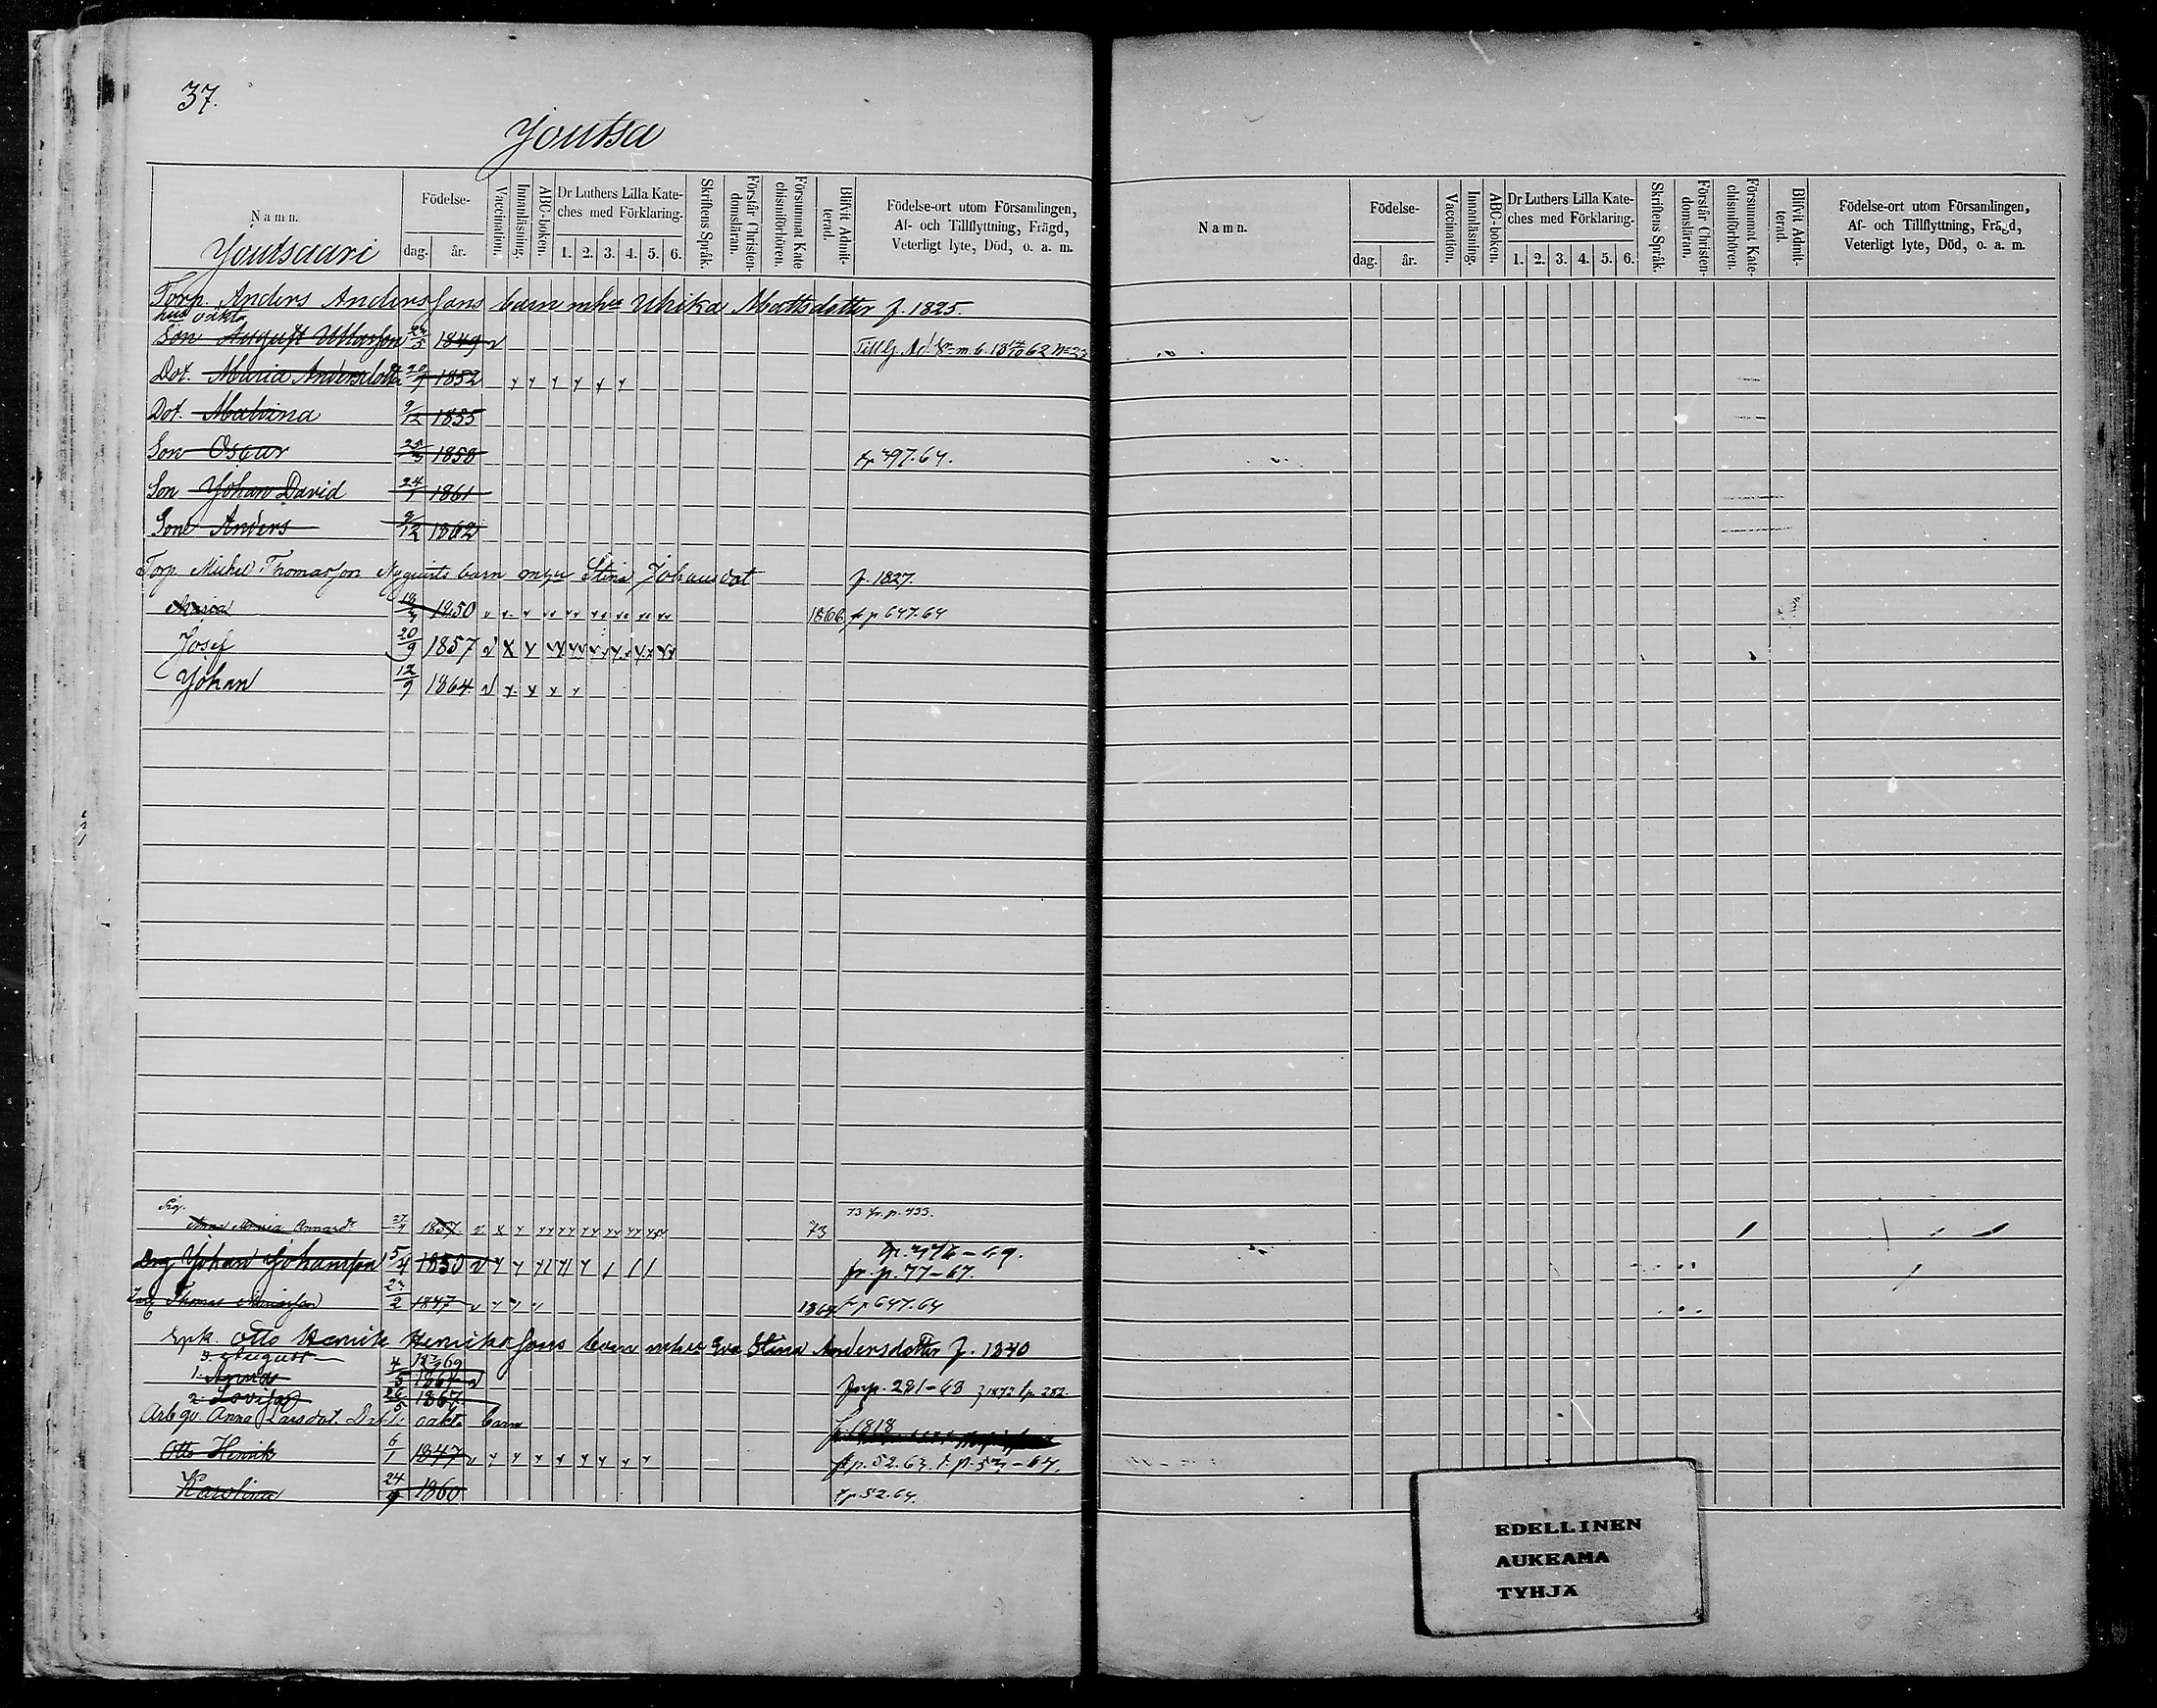 37.
Joutsa
Namn.
Joutsaari
Födelse-
dag. år.
Vaccination.
Innanläsning.
ABC-boken.
Dr Luthers Lilla Kate-
ches med Förklaring.
1. 2. 3. 4. 5. 6.
Skriftens Språk.
Förstår Christen-
domsläran.
Försummat Kate
chismiförhören.
Blifvit Admit-
terad.
Födelse-ort utom Församlingen,
Af- och Tillflyttning, Frägd,
Veterligt lyte, Död, o. a. m.
Torp. Anders Anderssons barn mhu Ulrika Mattsdotter f. 1825.
hus oäkta
Son August 1849
Dot. Maria Andersdotter 1852
Dot. Malvina 9/12 1855
Son Oscar 1858 397.64.
Son Johan David 24/1 1861
Son Anders 9/12 1862
Torp. Mickel Thomasson Nyquists barn mhu Stina Johansdot f. 1827.
Maria 1850 1866 fr p 647.64
Josef 20/9 1857
Johan 12/9 1864
Anna Maria 27/4 1857 73 73 fr. p. 433.
Drg Johan Johansson 5/4 1850 fr. p. 77-67.
Thomas 1847 1864 fr p 647.64
Otto Henrik Henrikssons barn mhu Eva Stina Andersdotter f. 1840
3. August 4 1869
1. 1864 281-68
2. Lovisa 26/5 1867
Anna Larsdot. oäkta barn 1818
Otto Henrik 6/1 1847
Karolina 24/9 1860 52.64.
Namn.
Födelse-
dag. år.
Vaccination.
Innanläsning.
ABC-boken.
Dr Luthers Lilla Kate-
ches med Förklaring.
1. 2. 3. 4. 5. 6.
Skriftens Språk.
Förstår Christen-
domsläran.
Försummat Kate-
chismiförhören.
Blifvit Admit-
terad.
Födelse-ort utom Församlingen,
Af- och Tillflyttning, Frägd,
Veterligt lyte, Död, o. a. m.
EDELLINEN
AUKEAMA
TYHJÄ